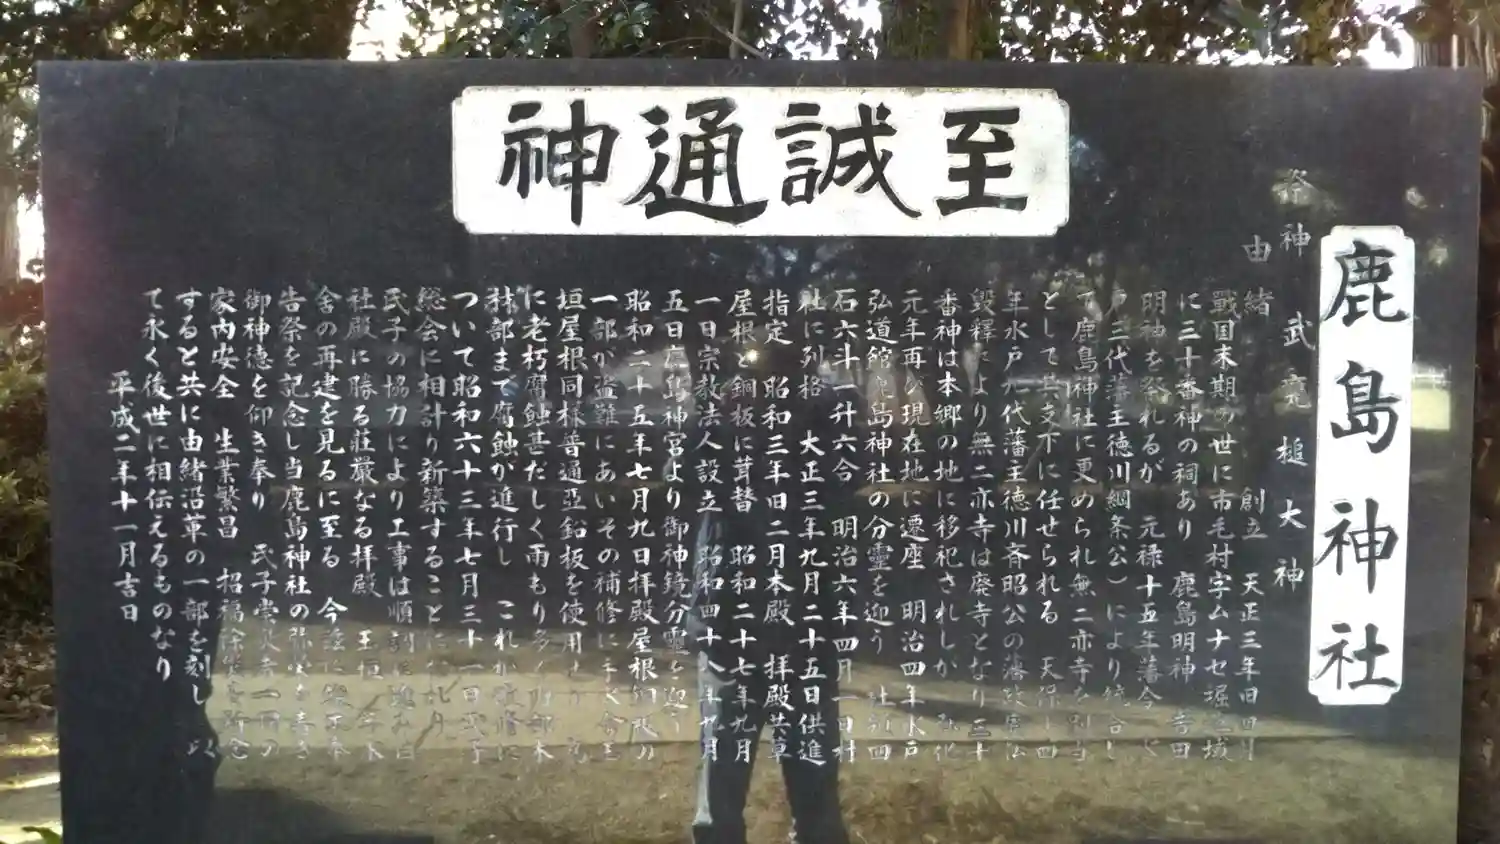 至誠通神
鹿島神社
祭神 武甕槌大神
由緒 創立 天正三年旧四月
戦国末期の世に市毛村字ムナセ堀之域
に三十番神の祠あり 鹿島明神 吉田
明神を祭れるが 元禄十五年藩令
三代藩主徳川綱条公)により統合し
て鹿島神社に更められ無二亦寺を別当
として其支下に任せられる 天保十四
年水戸九代藩主徳川斉昭公の
毀釋により無二亦寺は廃寺となり三十
番神は本郷の地に移祀されしか 弘化
元年再び現在地に遷座 明治四年水戸
弘道館鹿島神社の分霊を迎う 社領四
石六斗一升六合 明治六年四月一日村
社に列格 大正三年九月二十五日供進
指定 昭和三年旧二月本殿 拝殿共草
屋根と銅板に葺替 昭和二十七年九月
一日宗教法人設立 昭和四十八年九月
五日鹿島神宮より御神鏡分霊を迎う
昭和二十五年七月九日拝殿屋根銅板の
一部が盗難にあいその補修に
垣屋根同様普通亜鉛板を使用
に老朽腐蝕甚だしく雨もり多く内部木
材部まで腐蝕が進行し これが改修に
ついて昭和六十三年七月三十一日氏子
総会に相計り新築することに
氏子の協力により工事は順調に
社殿に勝る荘厳なる拝殿 玉垣
舎の再建を見るに至る 今
告祭を記念し当鹿島神社の
御神徳を仰き奉り 氏子崇
家内安全 生業繁昌 招福
すると共に由緒沿革の一部を刻し 以
て永く後世に相伝えるものなり
平成二年十一月吉日